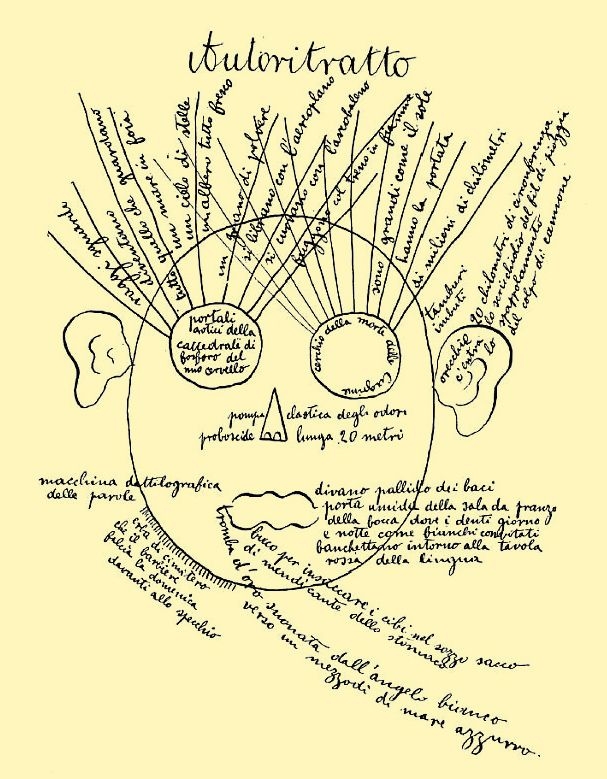 Autoritratto
diventano
tutto quello che guardano
un cielo di stelle
un albero tutto fresco
un grano di polvere
si librano con l'aeroplano
si curvano con l'arcobaleno
fuggono col treno in fiamme
sono grandi come il sole
hanno la portata
di milioni di chilometri
tamburi
imbuti
20 chilometri di circonferenza
lo scricchiolio del fil di pioggia
del colpo di cannone
orecchie
c'entra
lo
portali
della
cattedrale di
fosforo del
mio cervello
cerchio della morte delle lagrime
pompa elastica degli odori
proboscide lunga 20 metri
macchina dattilografica
delle parole
divano pallido dei baci
porta umida della sala da pranzo
della bocca dove i denti giorno
e notte come bianchi convitati
banchettano intorno alla tavola
rossa della lingua
erba di cimitero
che il barbiere
falcia la domenica
davanti allo specchio
buco per insaccare i cibi nel sozzo sacco
di mendicante dello stomaco
tromba d'oro suonata dall'angelo bianco
verso un mezzodì di mare azzurro.